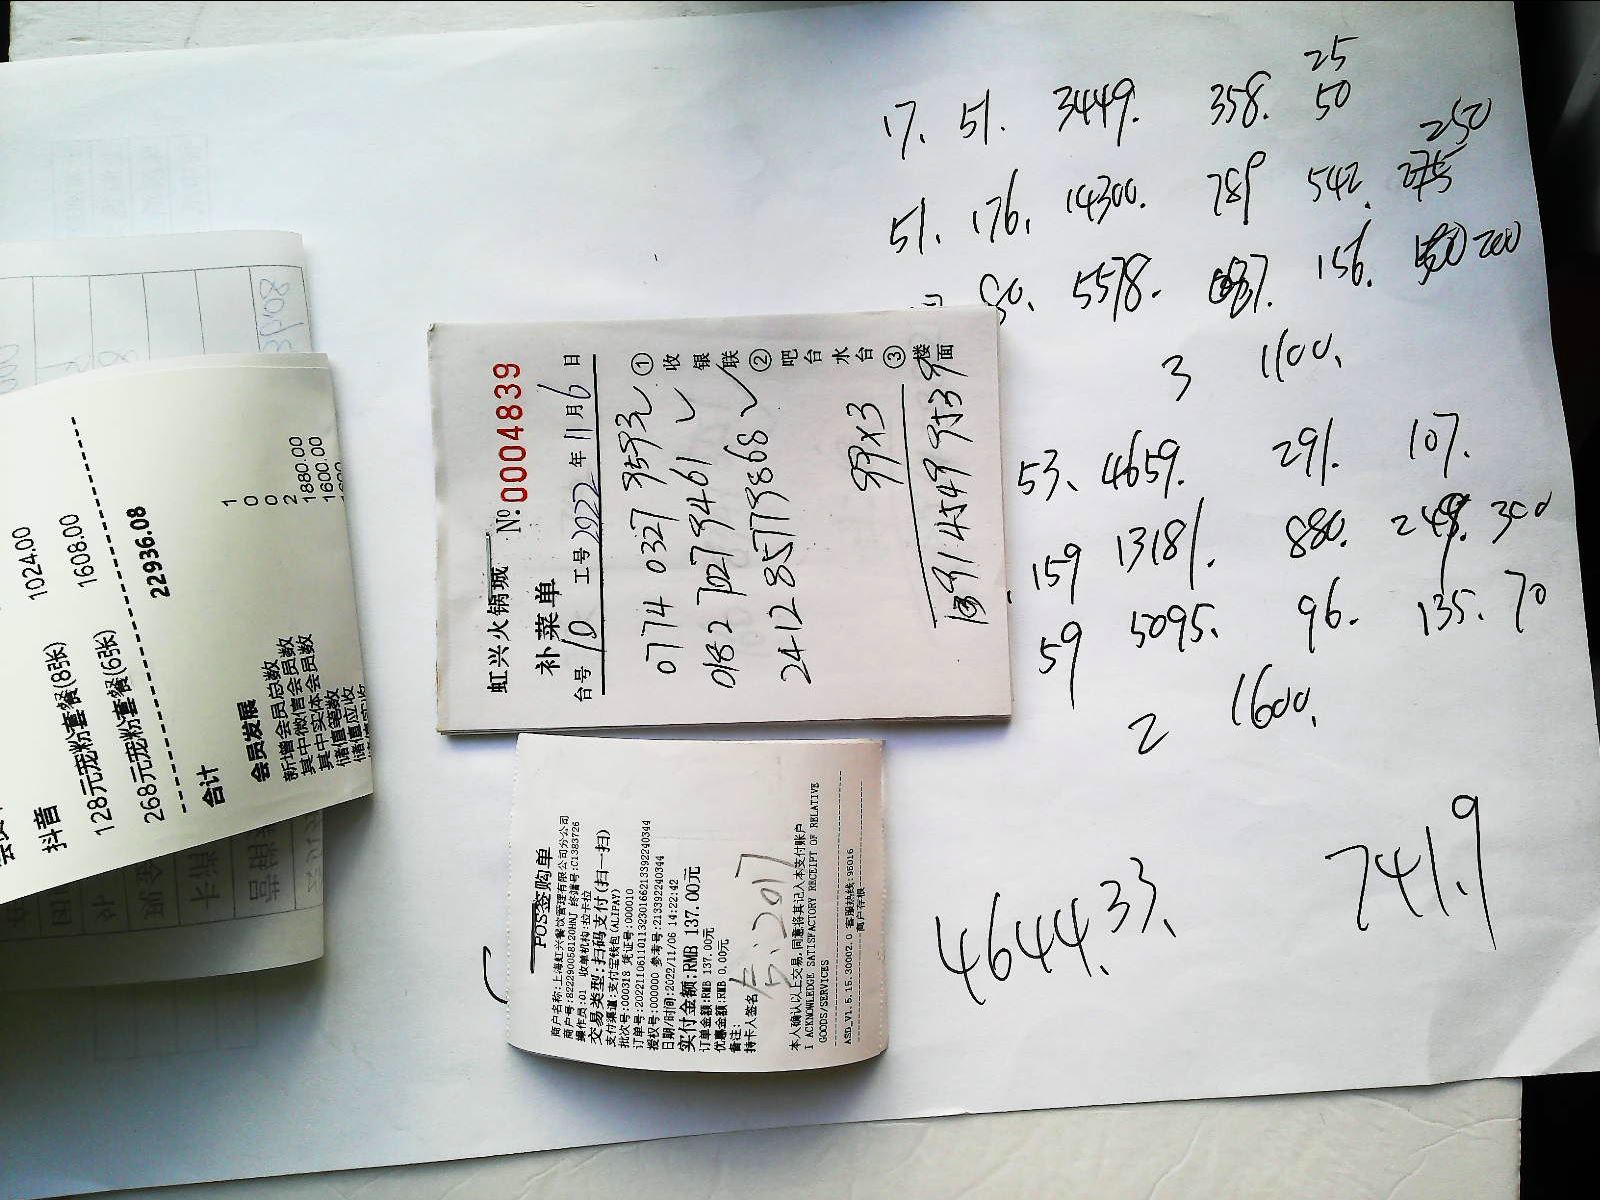 抖音 1024.00
128元宠粉套餐(8张) 1608.00
268元宠粉套餐(6张)
合计 22936.08
会员发展
新增会员总数 1
其中微信会员数 0
其中实体会员数 0
储值笔数 2
储值应收 1880.00
1600.00
虹兴火锅城 № 00004839
补菜单
台号 10 工号 2022年11月6日
0774 0327 9593
0182 7027 9461
2412 8577 9868
99×3
1391 4549 9539
①收银联②吧台水台③楼面
POS签购单
商户名称:上海虹兴餐饮管理有限公司分公司
商户号:822290058120HNJ 终端号:C1383726
操作员:01 收单机构:拉卡拉
交易类型:扫码支付(扫一扫)
支付渠道:支付宝钱包(ALIPAY)
批次号:000318 凭证号:000010
订单号:20221106110113230166213392240344
授权号:000000 参考号:213392240344
日期/时间:2022/11/06 14:22:42
实付金额:RMB 137.00元
订单金额:RMB 137.00元
优惠金额:RMB 0.00元
备注:
持卡人签名
:2017
本人确认以上交易,同意将其记入本支付账户
I ACKNOWLEDGE SATISFACTORY RECEIPT OF RELATIVE
GOODS/SERVICES
ASD_V1.5.15.30002.0 客服热线:95016
商户存根
25
17. 51. 3449. 358. 50
250
51. 176. 14300. 789 542. 275
80. 5578. 687. 156. 200
3 1100.
53. 4659. 291. 107.
159 13181. 880. 249. 300
59 5095. 96. 135. 70
2 1600.
4644.33. 741.9